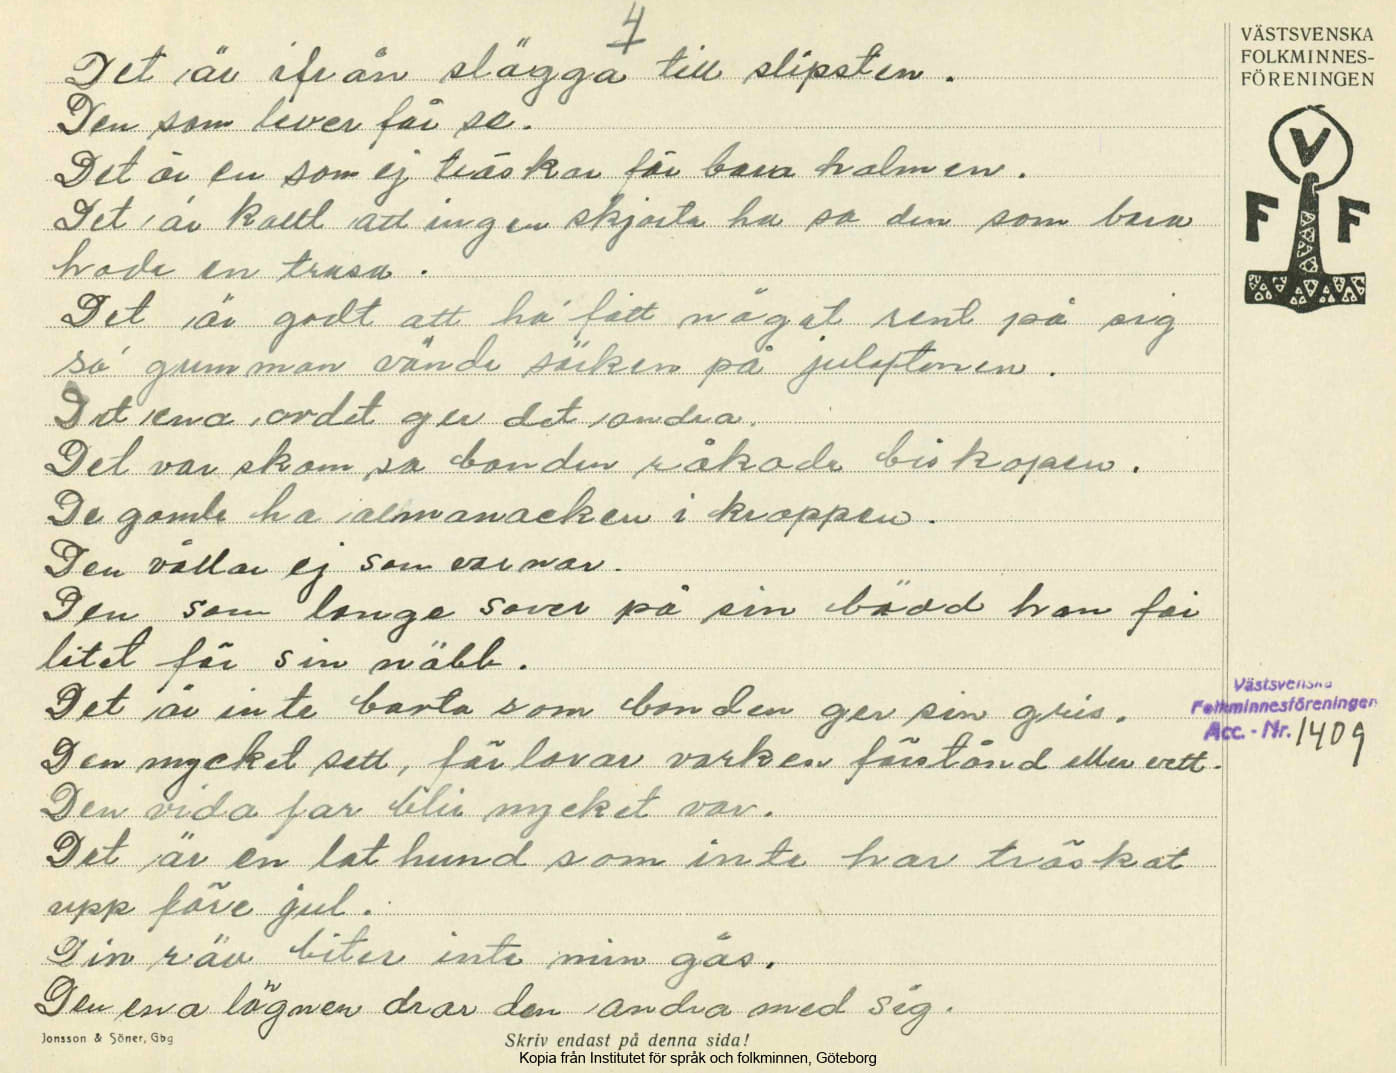 4
VÄSTSVENSKA
FOLKMINNES-
FÖRENINGEN
V
F F
Det är ifrån slägga till slipsten.
Den som lever får se.
Det är en som ej tröskar för bara halmen.
Det är kallt att ingen skjorta ha sa den som bara
hade en trasa.
Det är godt att ha fått något rent på sig
sa gumman vände särken på julaftonen.
Det ena ordet ger det andra.
Det var skam sa bonden råkade biskopen.
De gamla ha almanacken i kroppen.
Den vållar ej som varnar.
Den som länge sover på sin bädd han får
litet för sin näbb.
Det är inte barta som bonden ger sin gris.
Den mycket sett, för lovar varken förstånd eller vett.
Den vida far blir mycket var.
Det är en lat hund som inte har tröskat
upp före jul.
Din räv biter inte min gås.
Den ena lögnen drar den andra med sig.
Västsvenska
Folkminnesföreningen
Acc. - Nr. 1409
Jonsson & Söner, Gbg
Skriv endast på denna sida!
Kopia från Institutet för språk och folkminnen, Göteborg